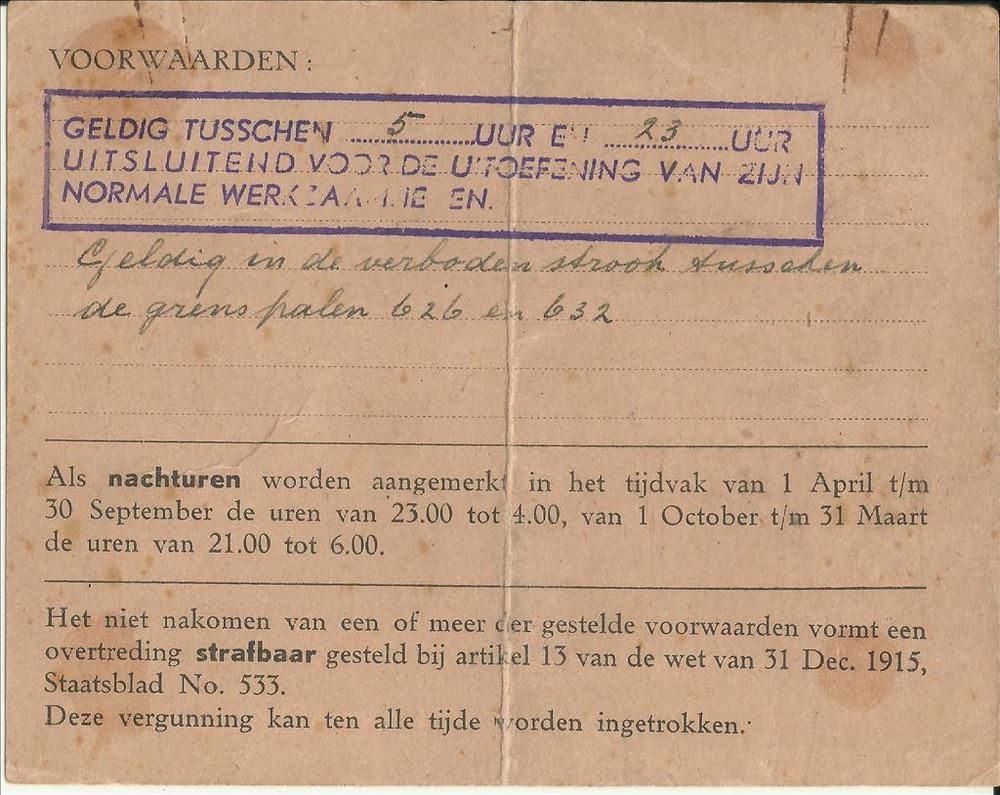 VOORWAARDEN:
GELDIG TUSSCHEN 5 UUR EN 23 UUR
UITSLUITEND VOOR DE UITOEFENING VAN ZIJN
NORMALE WERKZAAMHEDEN.
Geldig in de verboden strook tusschen
de grenspalen 626 en 632
Als nachturen worden aangemerkt in het tijdvak van 1 April t/m
30 September de uren van 23.00 tot 4.00, van 1 October t/m 31 Maart
de uren van 21.00 tot 6.00.
Het niet nakomen van een of meer der gestelde voorwaarden vormt een
overtreding strafbaar gesteld bij artikel 13 van de wet van 31 Dec. 1915,
Staatsblad No. 533.
Deze vergunning kan ten alle tijde worden ingetrokken.